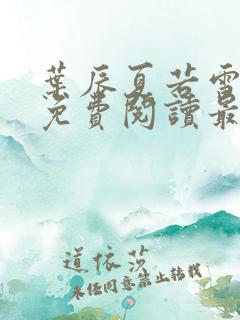 葉辰夏若雪
免費閱讀最
道依莎
未经同意禁止转载